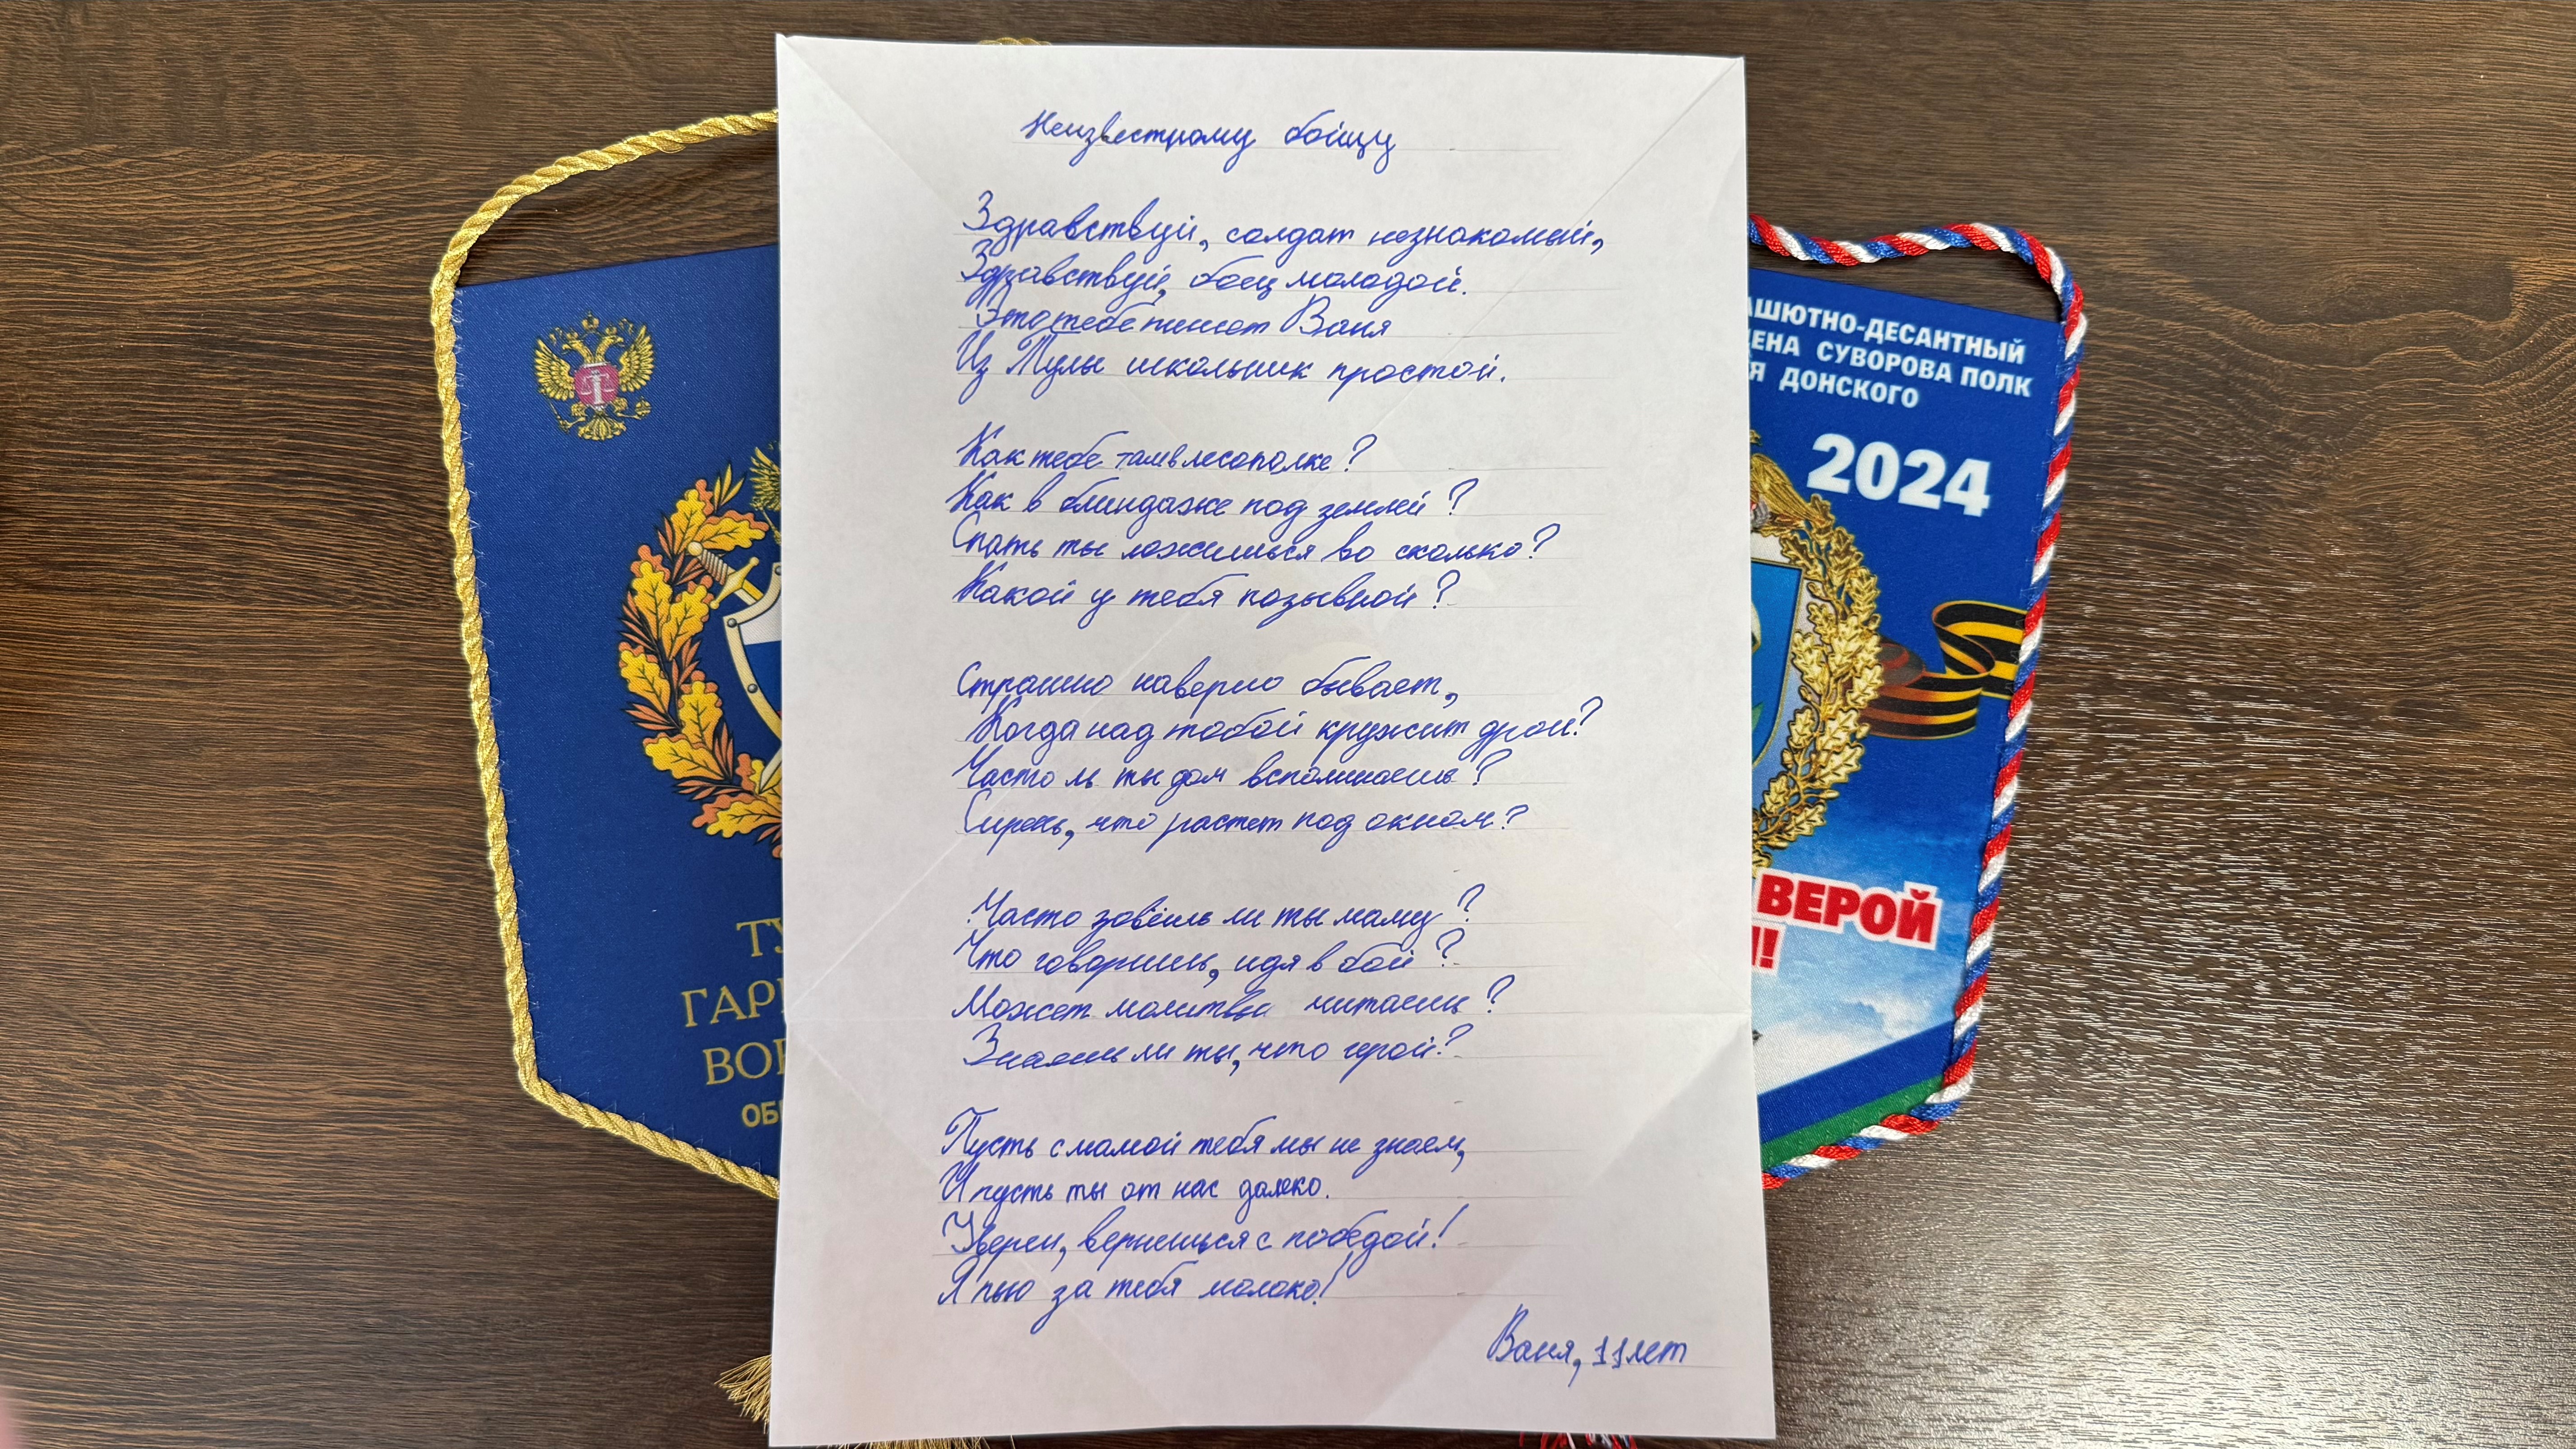 Неизвестному бойцу
Здравствуй, солдат незнакомый,
Здравствуй, боец молодой.
Это тебе пишет Ваня
Из Тулы школьник простой.
Как тебе там в лесополке?
Как в блиндаже под землей?
Спать ты ложишься во сколько?
Какой у тебя позывной?
Страшно наверно бывает,
Когда над тобой кружит дрон?
Часто ль ты дом вспоминаешь?
Сирень, что растет под окном?
Часто зовёшь ли ты маму?
Что говоришь, идя в бой?
Может молитвы читаешь?
Знаешь ли ты, что герой?
Пусть с мамой тебя мы не знаем,
И пусть ты от нас далеко.
Уверен, вернешься с победой!
Я пью за тебя молоко!
Ваня, 11 лет
ТУ
ГАР
ВО
ОБ
АШЮТНО-ДЕСАНТНЫЙ
ЕНА СУВОРОВА ПОЛК
Я ДОНСКОГО
2024
ВЕРОЙ
!